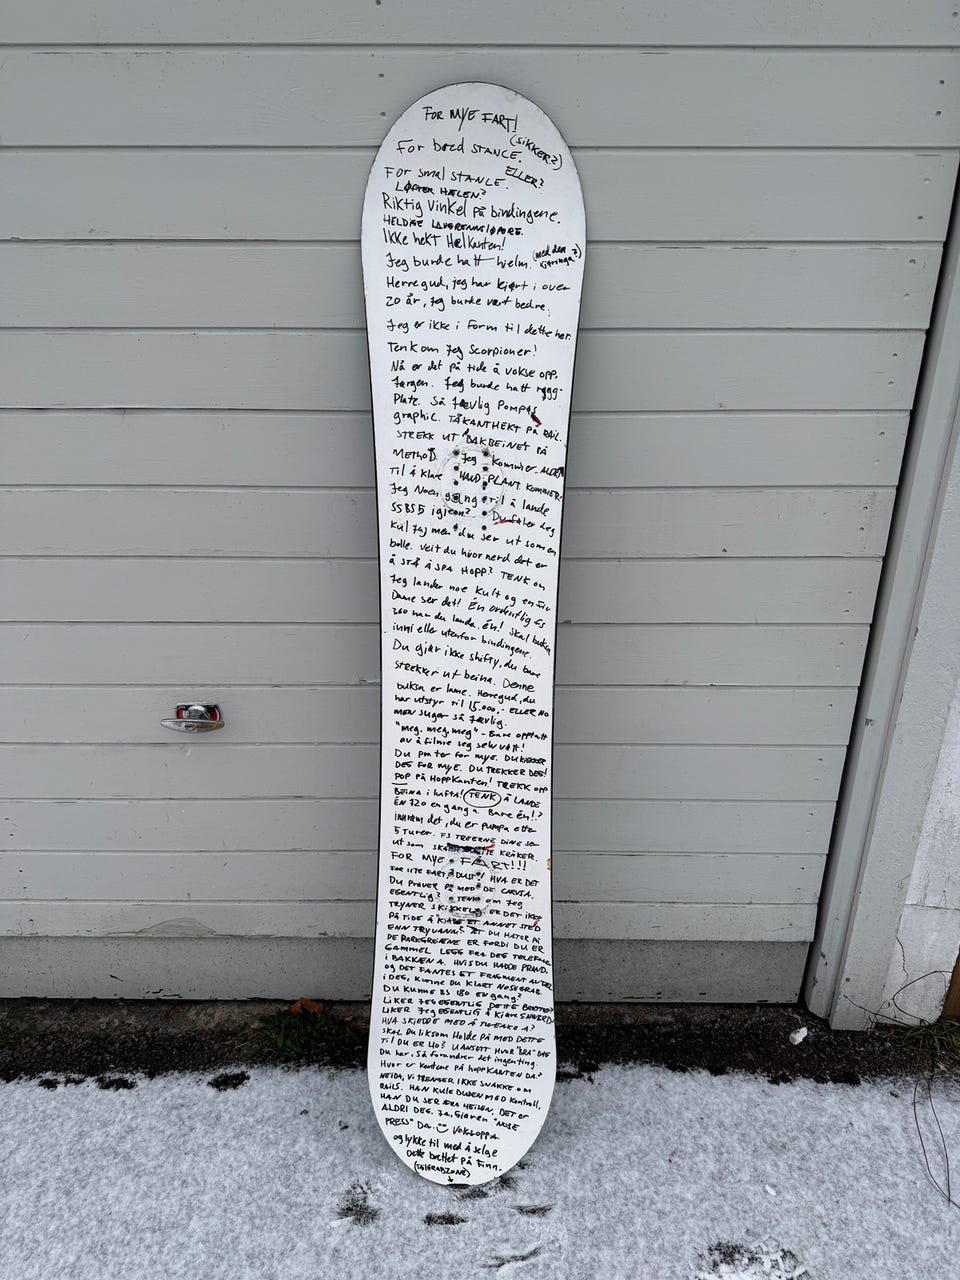 FOR MYE FART!
(SIKKER?)
For bred STANCE.
ELLER?
FOR smal STANCE.
LØFTER HÆLEN?
Riktig Vinkel på bindingene.
HELDIGE
Ikke hekt Hælkanten!
Jeg burde hatt hjelm. (med den kjøringa?)
Herregud, jeg har kjørt i over
20 år, Jeg burde vært bedre.
Jeg er ikke i Form til dette her.
Tenk om Jeg Scorpioner!
Nå er det på tide å vokse opp,
Jørgen. Jeg burde hatt rygg-
Plate. Så Jævlig POMPØS
graphic. TÅKANTHEKT PÅ RAIL.
STREKK UT BAKBEINET PÅ
METHOD. Jeg Kommer ALDRI
Til å klare HAND PLANT. KOMMER
Jeg Noen gang til å lande
SSBS5 igjen? Du føler deg
Kul Jag men du ser ut som en
bolle. Veit du hvor nerd det er
Å STÅ Å SPA HOPP? TENK om
Jeg lander noe Kult og en fin
Dame ser det! Én ordentlig FS
360 har du landa. Én! Skal buksa
inni eller utenfor bindingene.
Du gjør ikke shifty, du bare
strekker ut beina. Denne
buksa er lame. Herregud, du
har utstyr til 15.000,- ELLER NO
MEN suger så Jævlig.
"meg, meg, meg" - Bare opptatt
av å filme seg selv vøtt!
Du prater for mye. DU
DEG FOR MYE. DU TREKKER DEG!
POP PÅ HOPPKANTEN! TREKK OPP
BEINA i lufta! TENK Å LANDE
ÉN 720 en gang a. Bare én!?
innrøm det, du er pumpa etter
5 Turer. FS TREERNE DINE ser
ut som KRÅKER.
FOR MYE FART!!!
FOR LITE FART, DUST! HVA ER DET
DU Prøver PÅ MED DE CARVSA.
EGENTLIG? TENK om Jeg
TRYNER SKIKKELIG. ER DET ikke
PÅ TIDE Å KJØRE ET ANNET STED
ENN TRYVANN? AT DU HATER PÅ
DE PARKGREIENE ER FORDI DU ER
GAMMEL. LEGG FRA DEG TELEFONEN
i BAKKEN A. HVIS DU HADDE PRØVD,
og DET FANTES ET FRAGMENT AV TALENT
i DEG, KUNNE DU KLART NOSEGRAB.
DU KUNNE BS 180 EN gang?
LIKER JEG EGENTLIG DETTE BRETTET?
LIKER Jeg EGENTLIG Å KJØRE SNOWBOARD?
HVA SKJEDDE MED Å TWEAKE A?
SKAL DU liksom HOLDE PÅ MED DETTE
Til DU ER 40? UANSETT HVOR "BRA"
Du har, så forandrer det ingenting.
Hvor er Kordene på hoppKANTEN DA?
NEIDA, Vi TRENGER IKKE SNAKKE OM
RAILS. HAN KULE DUDEN MED Kontroll,
HAN DU SER FRA HEISEN. DET er
ALDRI DEG. Ja, Gjør en "NOSE
PRESS" DA. Voks opp
og lykke til med å selge
Dette brettet på Finn.